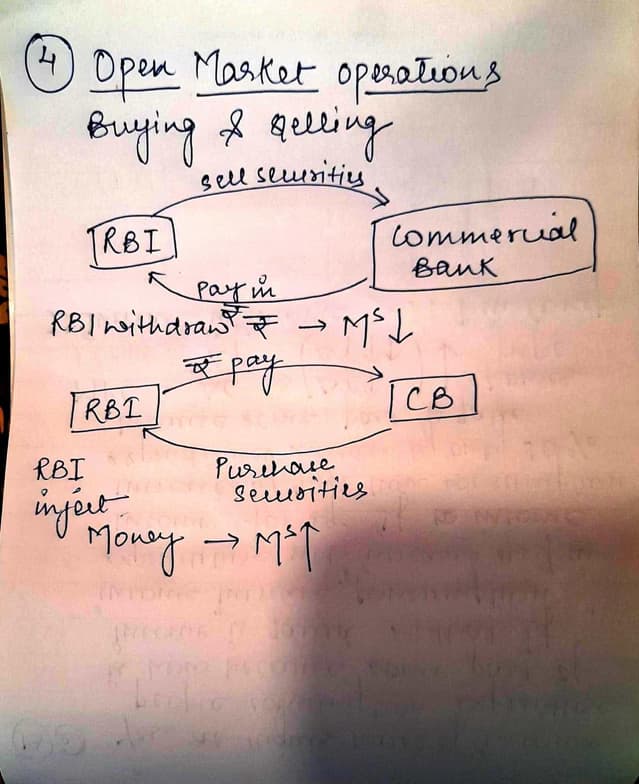 4 Open Market operations
Buying & Selling
sell securities
RBI
Commercial
Bank
Pay in
₹
RBI withdraw ₹ → Mˢ↓
₹ pay
RBI
CB
RBI
inject
Purchase
securities
Money → Mˢ↑